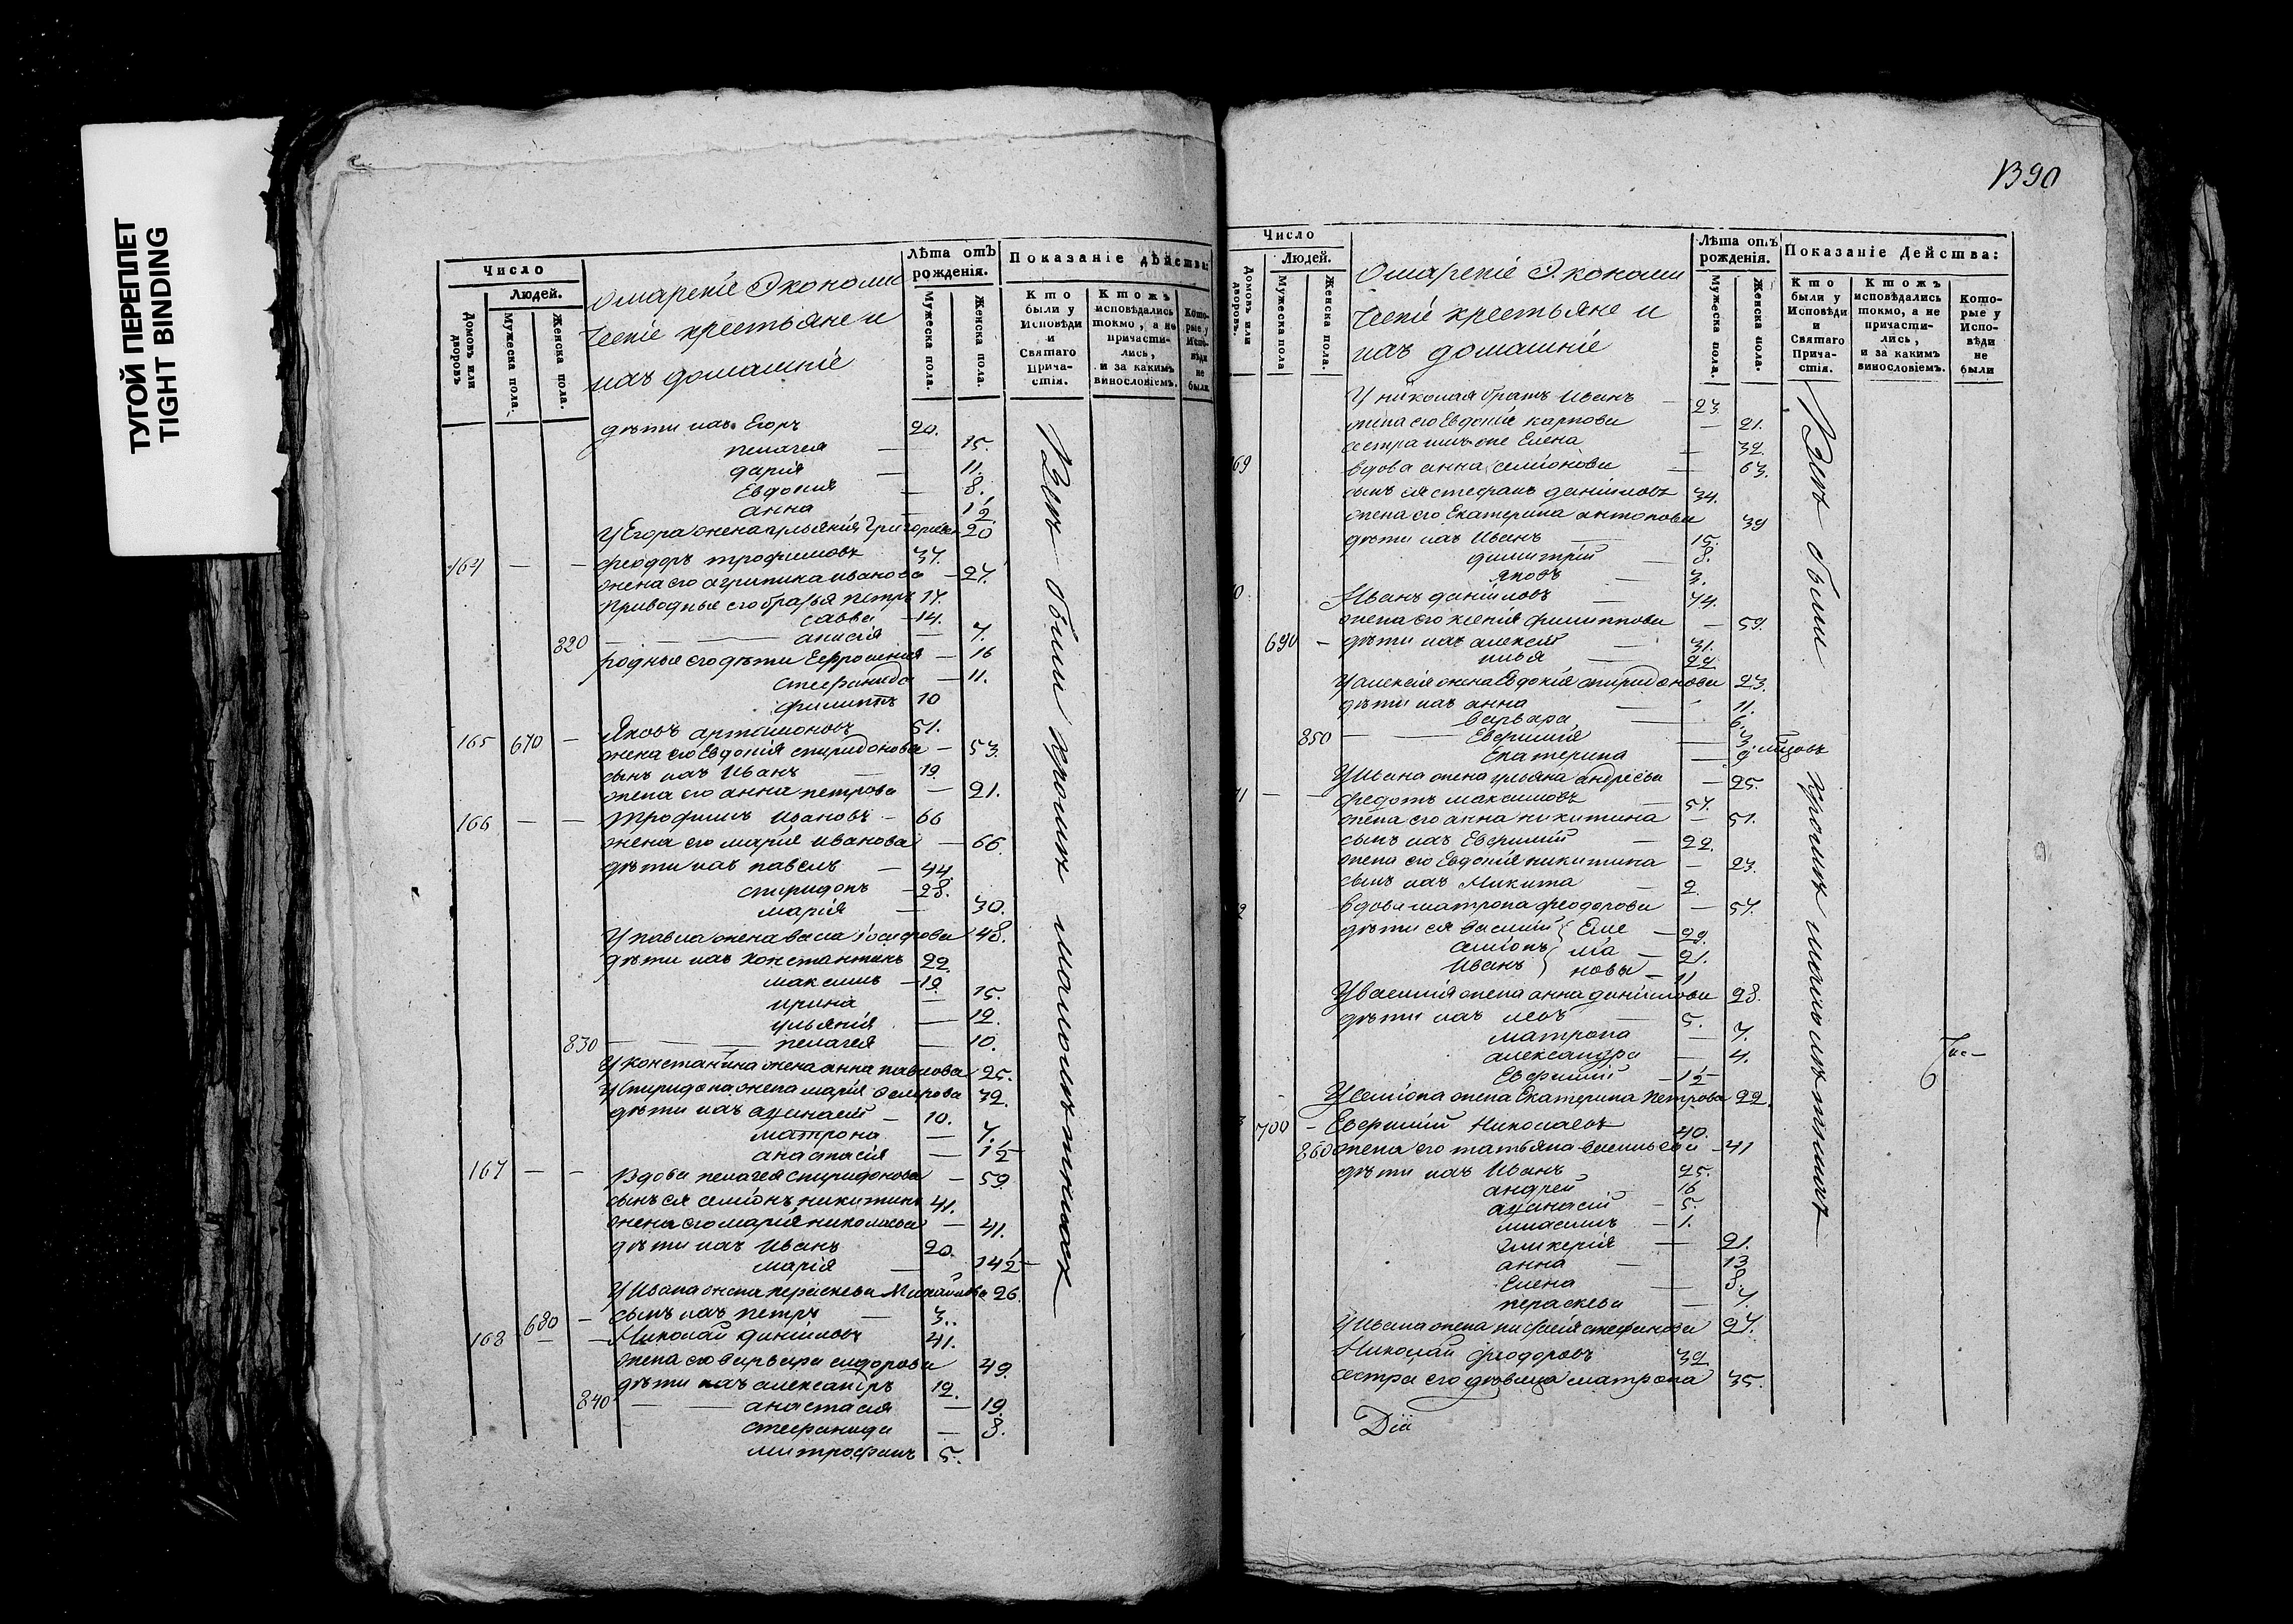 ТУГОЙ ПЕРЕПЛЕТ
TIGHT BINDING
Число
Людей.
Домовъ или дворовъ
Мужеска пола.
Женска пола.
Экономи
ческіе крестьяне и
ихъ домашніе
Лѣта отъ рожденія.
Мужеска пола.
Женска пола.
Показаніе дѣйства:
Кто были у Исповѣди и Святаго Прича-стія.
Ктожъ исповѣдались токмо, а не причасти-лись, и за какимъ винословіемъ.
Кото-рые у Испо-вѣди не были
дѣти ихъ Егоръ 20.
пелагея — 15.
дарія — 11.
Евдокия — 8.
анна — 1/2
У Егора жена ульянія Григорьева 20
164 — — феодоръ трофимовъ 37.
жена его агрипина иванова — 27.
Приводные его братья Петръ 17.
савва — 14.
820 — анисія — 7.
родные его дѣти Ефросинія — 16
стефанида — 11.
филиппъ 10
165 670 — Яковъ артамоновъ 51.
жена его Евдокія спиридонова — 53.
сынъ ихъ Иванъ — 19.
жена его анна петрова — 21.
166 — — трофимъ Ивановъ — 66
жена его марія иванова — 66.
дѣти ихъ павелъ — 44.
спиридонъ — 28.
марія — 30.
У павла жена васа іосифова 48.
дѣти ихъ константинъ 22.
максимъ — 19.
ирина — 15.
ульянія — 12.
830 — — пелагея — 10.
У константина жена анна павлова 25.
У спиридона жена марія 32.
дѣти ихъ аѳанасій — 10.
матрона — 7.
анастасія — 1/2
167 — — Вдова пелагея спиридонова — 59.
сынъ ея семіонъ никитинъ 41.
жена его марія николаева — 41.
дѣти ихъ Иванъ 20.
марія — 14 1/2
У Ивана жена параскева Михайлова 26.
680 — сынъ ихъ петръ — 3.
168 — — Николай даниловъ 41.
жена его варвара сидорова 49.
дѣти ихъ александръ 12.
840 — — анастасія — 19.
стефанида — 8.
митрофанъ 5.
Всѣ были кромѣ малолѣтныхъ
1390
Число
Людей.
Домовъ или дворовъ.
Мужеска пола
Женска пола.
Экономи
ческіе крестьяне и
ихъ домашніе
Лѣта отъ рожденія.
Мужеска пола.
Женска пола.
Показаніе Действа:
Кто были у Исповѣди и Святаго Прича-стія.
Ктожъ исповѣдались токмо, а не причасти-лись, и за какимъ винословіемъ.
Кото-рые у Испо-вѣди не были
У николая братъ Иванъ — 23
жена его Евдокія карпова — 21.
сестра имъ же Елена — 32.
69 вдова анна семіонова — 63.
сынъ ея стефанъ даниловъ 34.
жена его Екатерина антонова 39
дѣти ихъ Иванъ — 15.
димитрій — 8.
яковъ — 3.
0 Иванъ даниловъ — 74.
жена его ксенія филиппова — 59.
690 — дѣти ихъ алексѣй — 31.
илья — 22
У алексѣя жена Евдокія спиридонова 23.
дѣти ихъ анна 11.
варвара — 6.
850 — — Евфимія — 3.
Екатерина — 9. мѣсяцовъ
У Ивана жена ульяна андреева — 25.
71 — — федотъ максимовъ — 57.
жена его анна никитина — 51.
сынъ ихъ Евфимій — 22.
жена его Евдокія никитина — 23.
сынъ ихъ Никита — 2.
2 вдова матрона феодорова — 57.
дѣти ея Василій } Еме — 29.
семіонъ } лiа — 21.
Иванъ } новы — 11
У василія жена анна данилова 28.
дѣти ихъ левъ — 5.
матрона — 7.
александра — 4.
Евфимій — 1/2
У семіона жена Екатерина Петрова 22.
3 700 — Евфимій Николаевъ 40.
860 жена его татьяна васильева — 41
дѣти ихъ Иванъ 25.
андрей 16
аѳанасій — 5.
— 1.
гликерія — 21.
анна — 13
Елена — 8.
параскева — 7.
У ивана жена стефанова 27.
Николай феодоровъ 32
сестра его дѣвица матрона 35.
Всѣ были кромѣ малолѣтныхъ
6
Дія